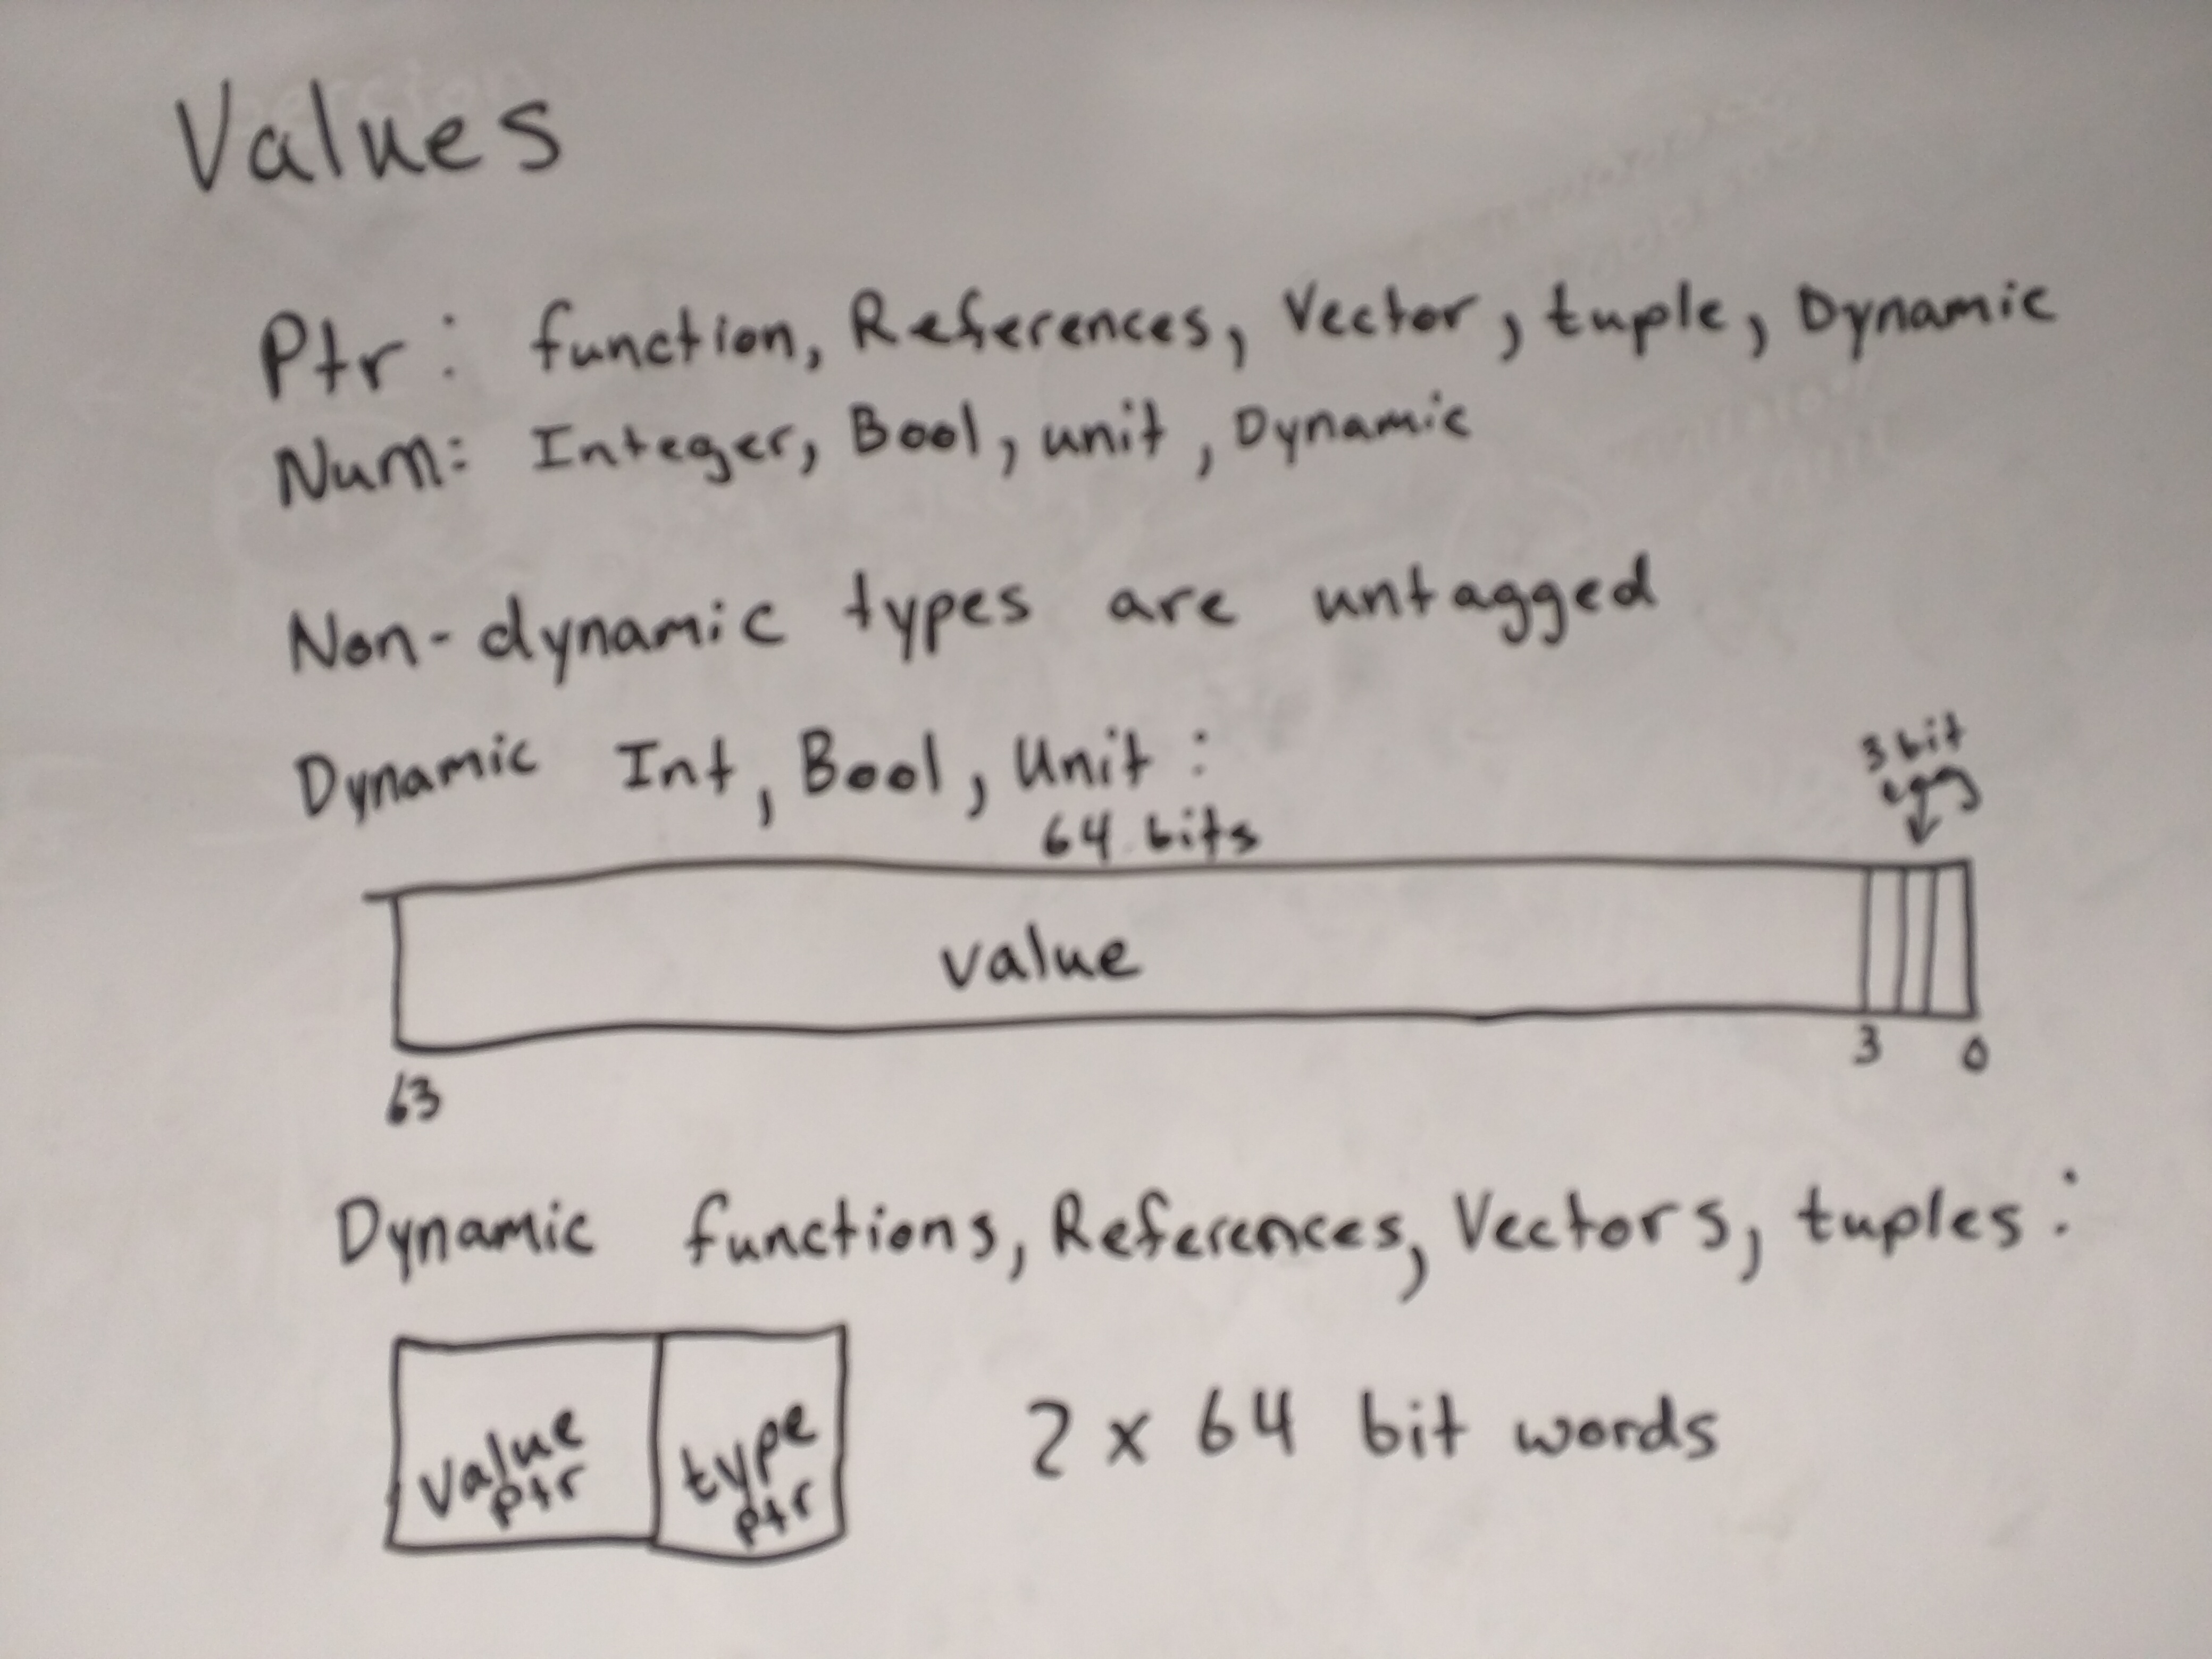 Values
Ptr: function, References, Vector, tuple, Dynamic
Num: Integer, Bool, unit, Dynamic
Non-dynamic types are untagged
Dynamic Int, Bool, Unit:
64 bits
3 bit
value
63
3
0
Dynamic functions, References, Vectors, tuples:
value
ptr
type
ptr
2 x 64 bit words